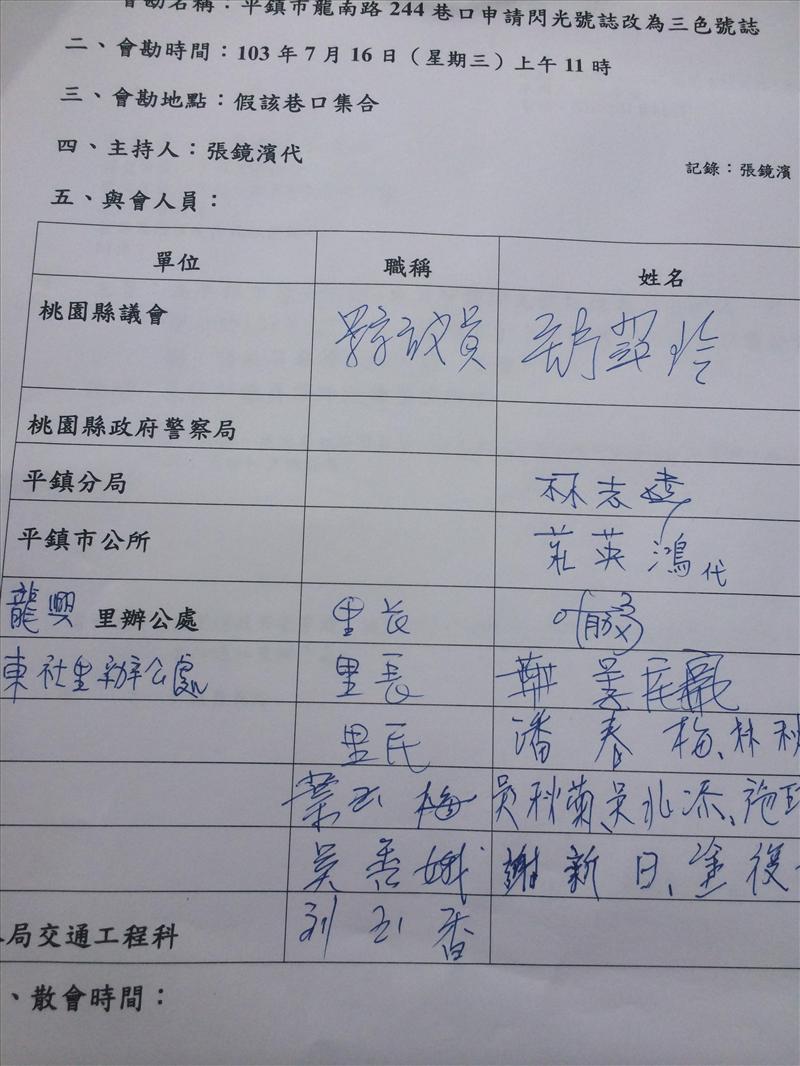 會勘名稱：平鎮市龍南路244巷口申請閃光號誌改為三色號誌
二、會勘時間：103年7月16日（星期三）上午11時
三、會勘地點：假該巷口集合
四、主持人：張鏡濱代
記錄：張鏡濱
五、與會人員：
單位 職稱 姓名
桃園縣議會 縣議員 舒翠玲
桃園縣政府警察局
平鎮分局 林志
平鎮市公所 莊英鴻代
龍興里辦公處 里長
東社里辦公處 里長
里民 潘春梅、林秋
葉玉梅 吳秋菊、吳兆添、施
吳香娥 謝新日、塗復
劉玉香
局交通工程科
、散會時間：